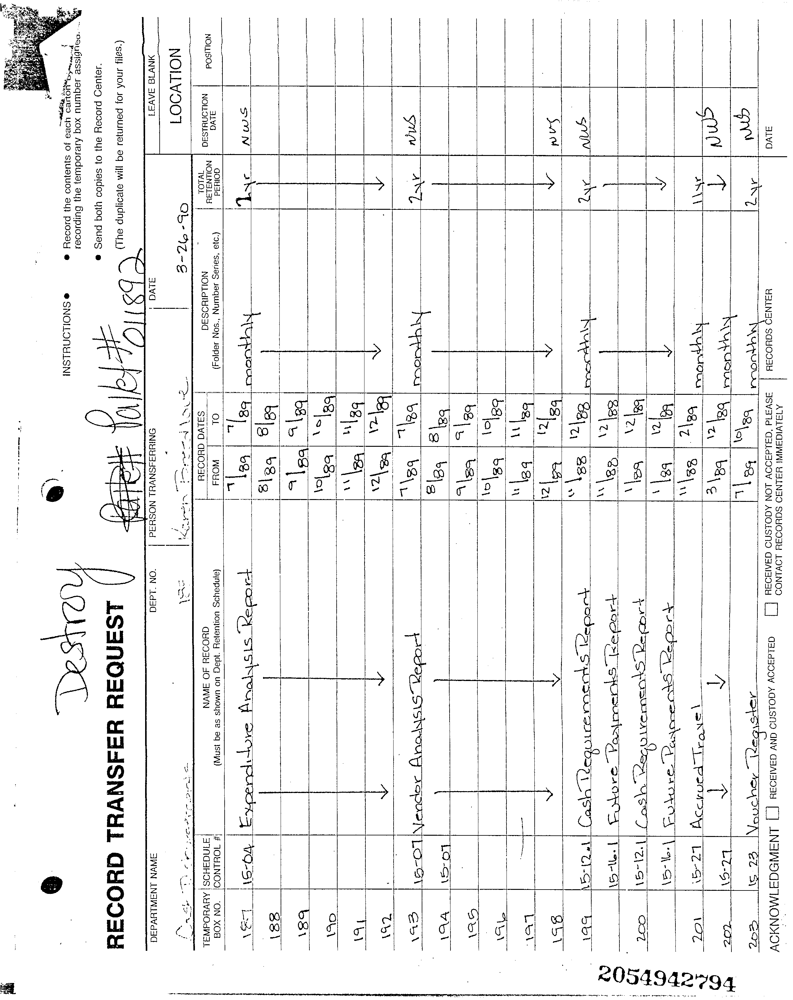 Destroy
Pallet # 011892
RECORD TRANSFER REQUEST
INSTRUCTIONS • • Record the contents of each carton by
recording the temporary box number assigned.
• Send both copies to the Record Center.
(The duplicate will be returned for your files.)
DEPARTMENT NAME DEPT. NO. PERSON TRANSFERRING DATE LEAVE BLANK
Karen 3-26-90 LOCATION
TEMPORARY BOX NO. SCHEDULE CONTROL # NAME OF RECORD (Must be as shown on Dept. Retention Schedule) RECORD DATES FROM TO DESCRIPTION (Folder Nos., Number Series, etc.) TOTAL RETENTION PERIOD DESTRUCTION DATE POSITION
187 15-04 Expenditure Analysis Report 7/89 7/89 monthly 2yr NWS
188 8/89 8/89
189 9/89 9/89
190 10/89 10/89
191 11/89 11/89
192 12/89 12/89
193 15-07 Vendor Analysis Report 7/89 7/89 monthly 2yr NWS
194 15-07 8/89 8/89
195 9/89 9/89
196 10/89 10/89
197 11/89 11/89
198 12/89 12/89 NWS
199 15-12.1 Cash Requirements Report 11/88 12/88 monthly 2yr NWS
15-16.1 Future Payments Report 11/88 12/88
200 15-12.1 Cash Requirements Report 1/89 12/89
15-16.1 Future Payments Report 1/89 12/89
201 15-27 Accrued Travel 11/88 2/89 monthly 11yr
202 15-27 3/89 12/89 monthly NWS
203 15-23 Voucher Register 7/89 10/89 monthly 2yr NWS
ACKNOWLEDGMENT RECEIVED AND CUSTODY ACCEPTED RECEIVED CUSTODY NOT ACCEPTED, PLEASE CONTACT RECORDS CENTER IMMEDIATELY RECORDS CENTER DATE
2054942794